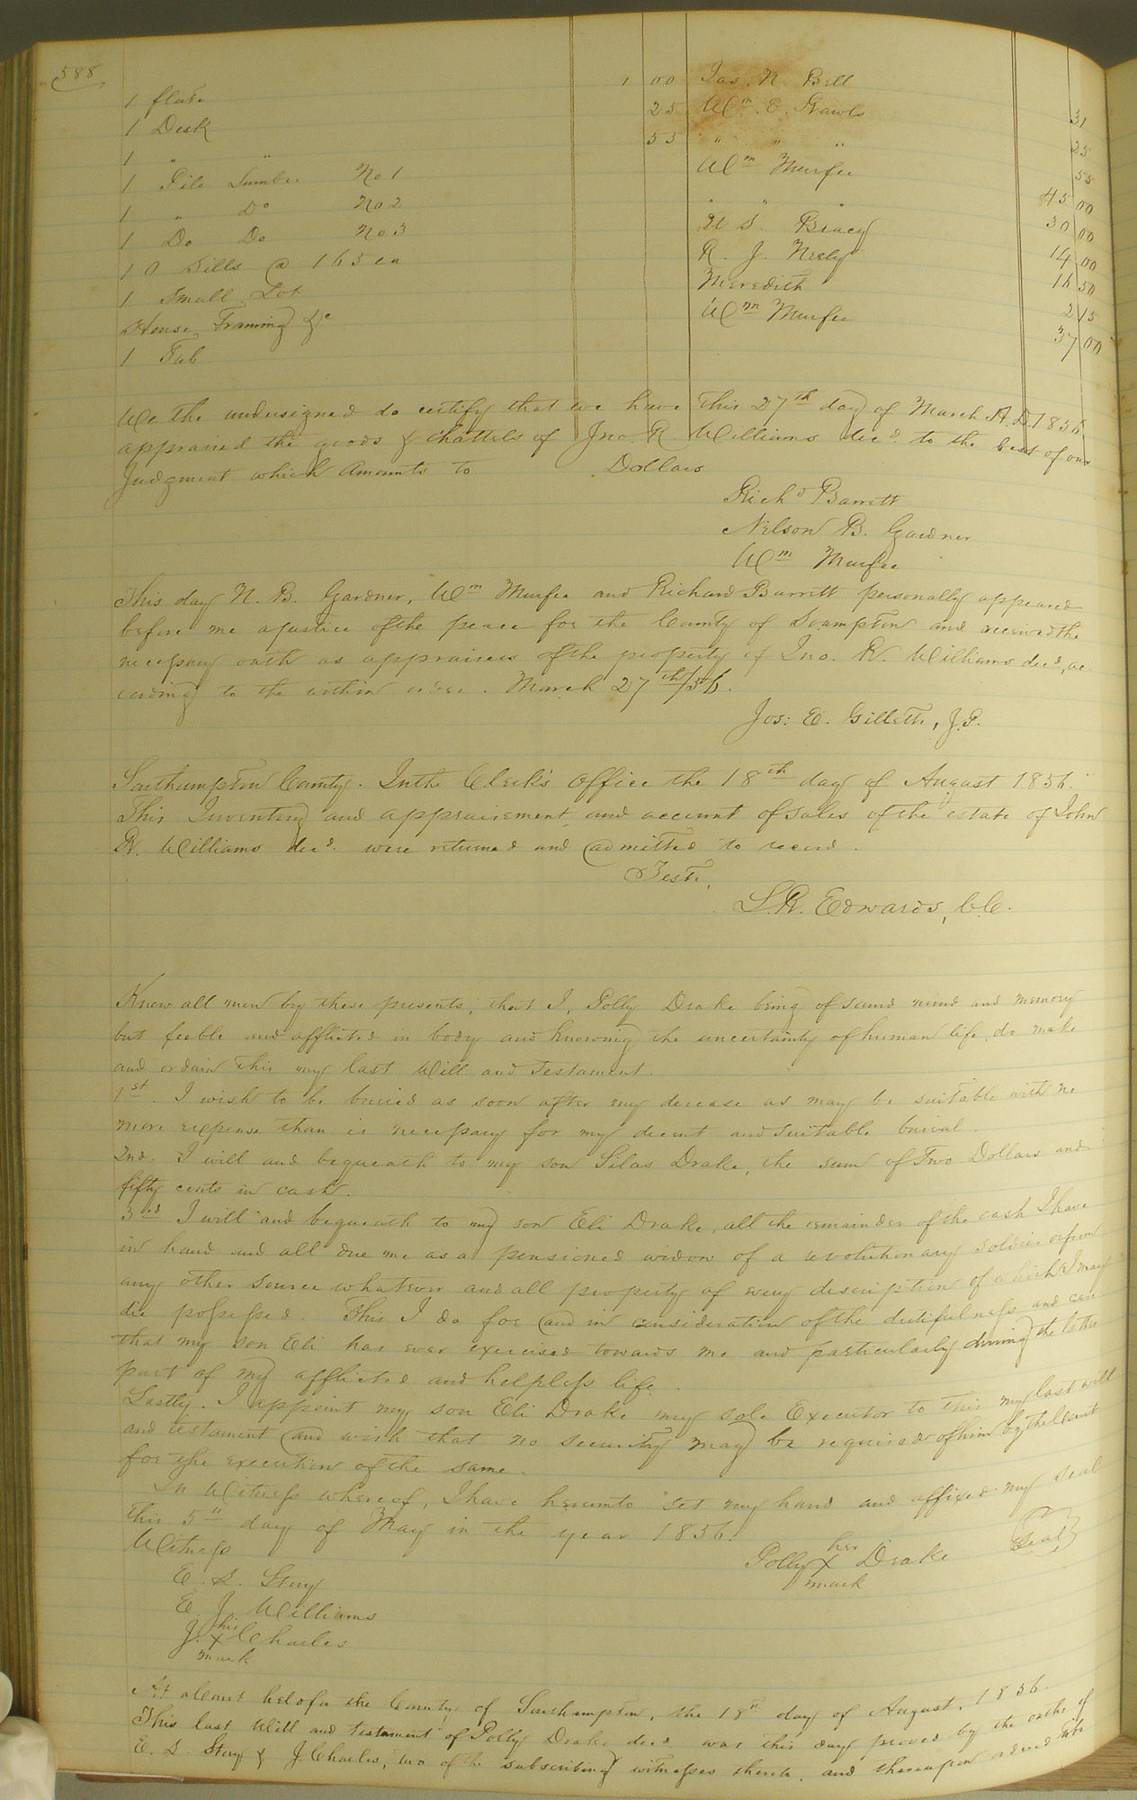 588
1 flute 1 00 Jas. N. Bell 31
1 Desk 25 Wm. E. Rawls 25
1 " " 55 " " " 55
1 Pile Lumber No 1 Wm Murfee 45 00
1 " Do No 2 " " " 30 00
1 Do Do No 3 U S. Bracy 14 00
10 Sills @ 165 ea R. J. Neely 16 50
1 Small Lot Meredith 2 15
House Framing &c Wm Murfee 37 00
1 Tub
We the undersigned do certify that we have this 27th day of March A.D. 1856.
appraised the goods & chattels of Jno. R. Williams decd. to the best of our
Judgment which Amounts to Dollars
Richd Barrett
Nelson B. Gardner
Wm Murfee
This day N. B. Gardner, Wm Murfee and Richard Barrett personally appeared
before me a justice of the peace for the County of Southampton and received the
necessary oath as appraisers of the property of Jno. R. Williams decd, ac
cording to the within order. March 27th/56.
Jos: E. Gillette, J.P.
Southampton County. In the Clerk's Office the 18th day of August 1856.
This Inventory and appraisement and account of sales of the estate of John
R. Williams decd. were returned and admitted to record.
Teste,
L.R. Edwards, C.C.
Know all men by these presents, that I, Polly Drake being of sound mind and memory
but feeble and afflicted in body and knowing the uncertainty of human life, do make
and ordain this my last Will and testament.
1st. I wish to be buried as soon after my decease as may be suitable with no
more expense than is necessary for my decent and suitable burial.
2nd. I will and bequeath to my son Silas Drake, the sum of Two Dollars and
fifty cents in cash.
3rd I will and bequeath to my son Eli Drake, all the remainder of the cash I have
in hand and all due me as a pensioned widow of a revolutionary soldier or from
any other source whatever and all property of every description of which I may
die possessed. This I do for and in consideration of the dutifulness and care
that my son Eli has ever exercised towards me and particularly during the latter
part of my afflicted and helpless life.
Lastly. I appoint my son Eli Drake my sole Executor to this my last will
and testament and wish that no security may be required of him by the Court
for the execution of the same.
In Witness whereof, I have hereunto set my hand and affixed my seal
this 5th day of May in the year 1856.
Witness Polly her X mark Drake Seal
E. S. Story
E. J. Williams
J. his X mark Charles
At a Court held for the County of Southampton, the 18th day of August, 1856.
This last Will and testament of Polly Drake decd. was this day proved by the oaths of
E. S. Story & J. Charles, two of the subscribing witnesses thereto, and thereupon ordered to be